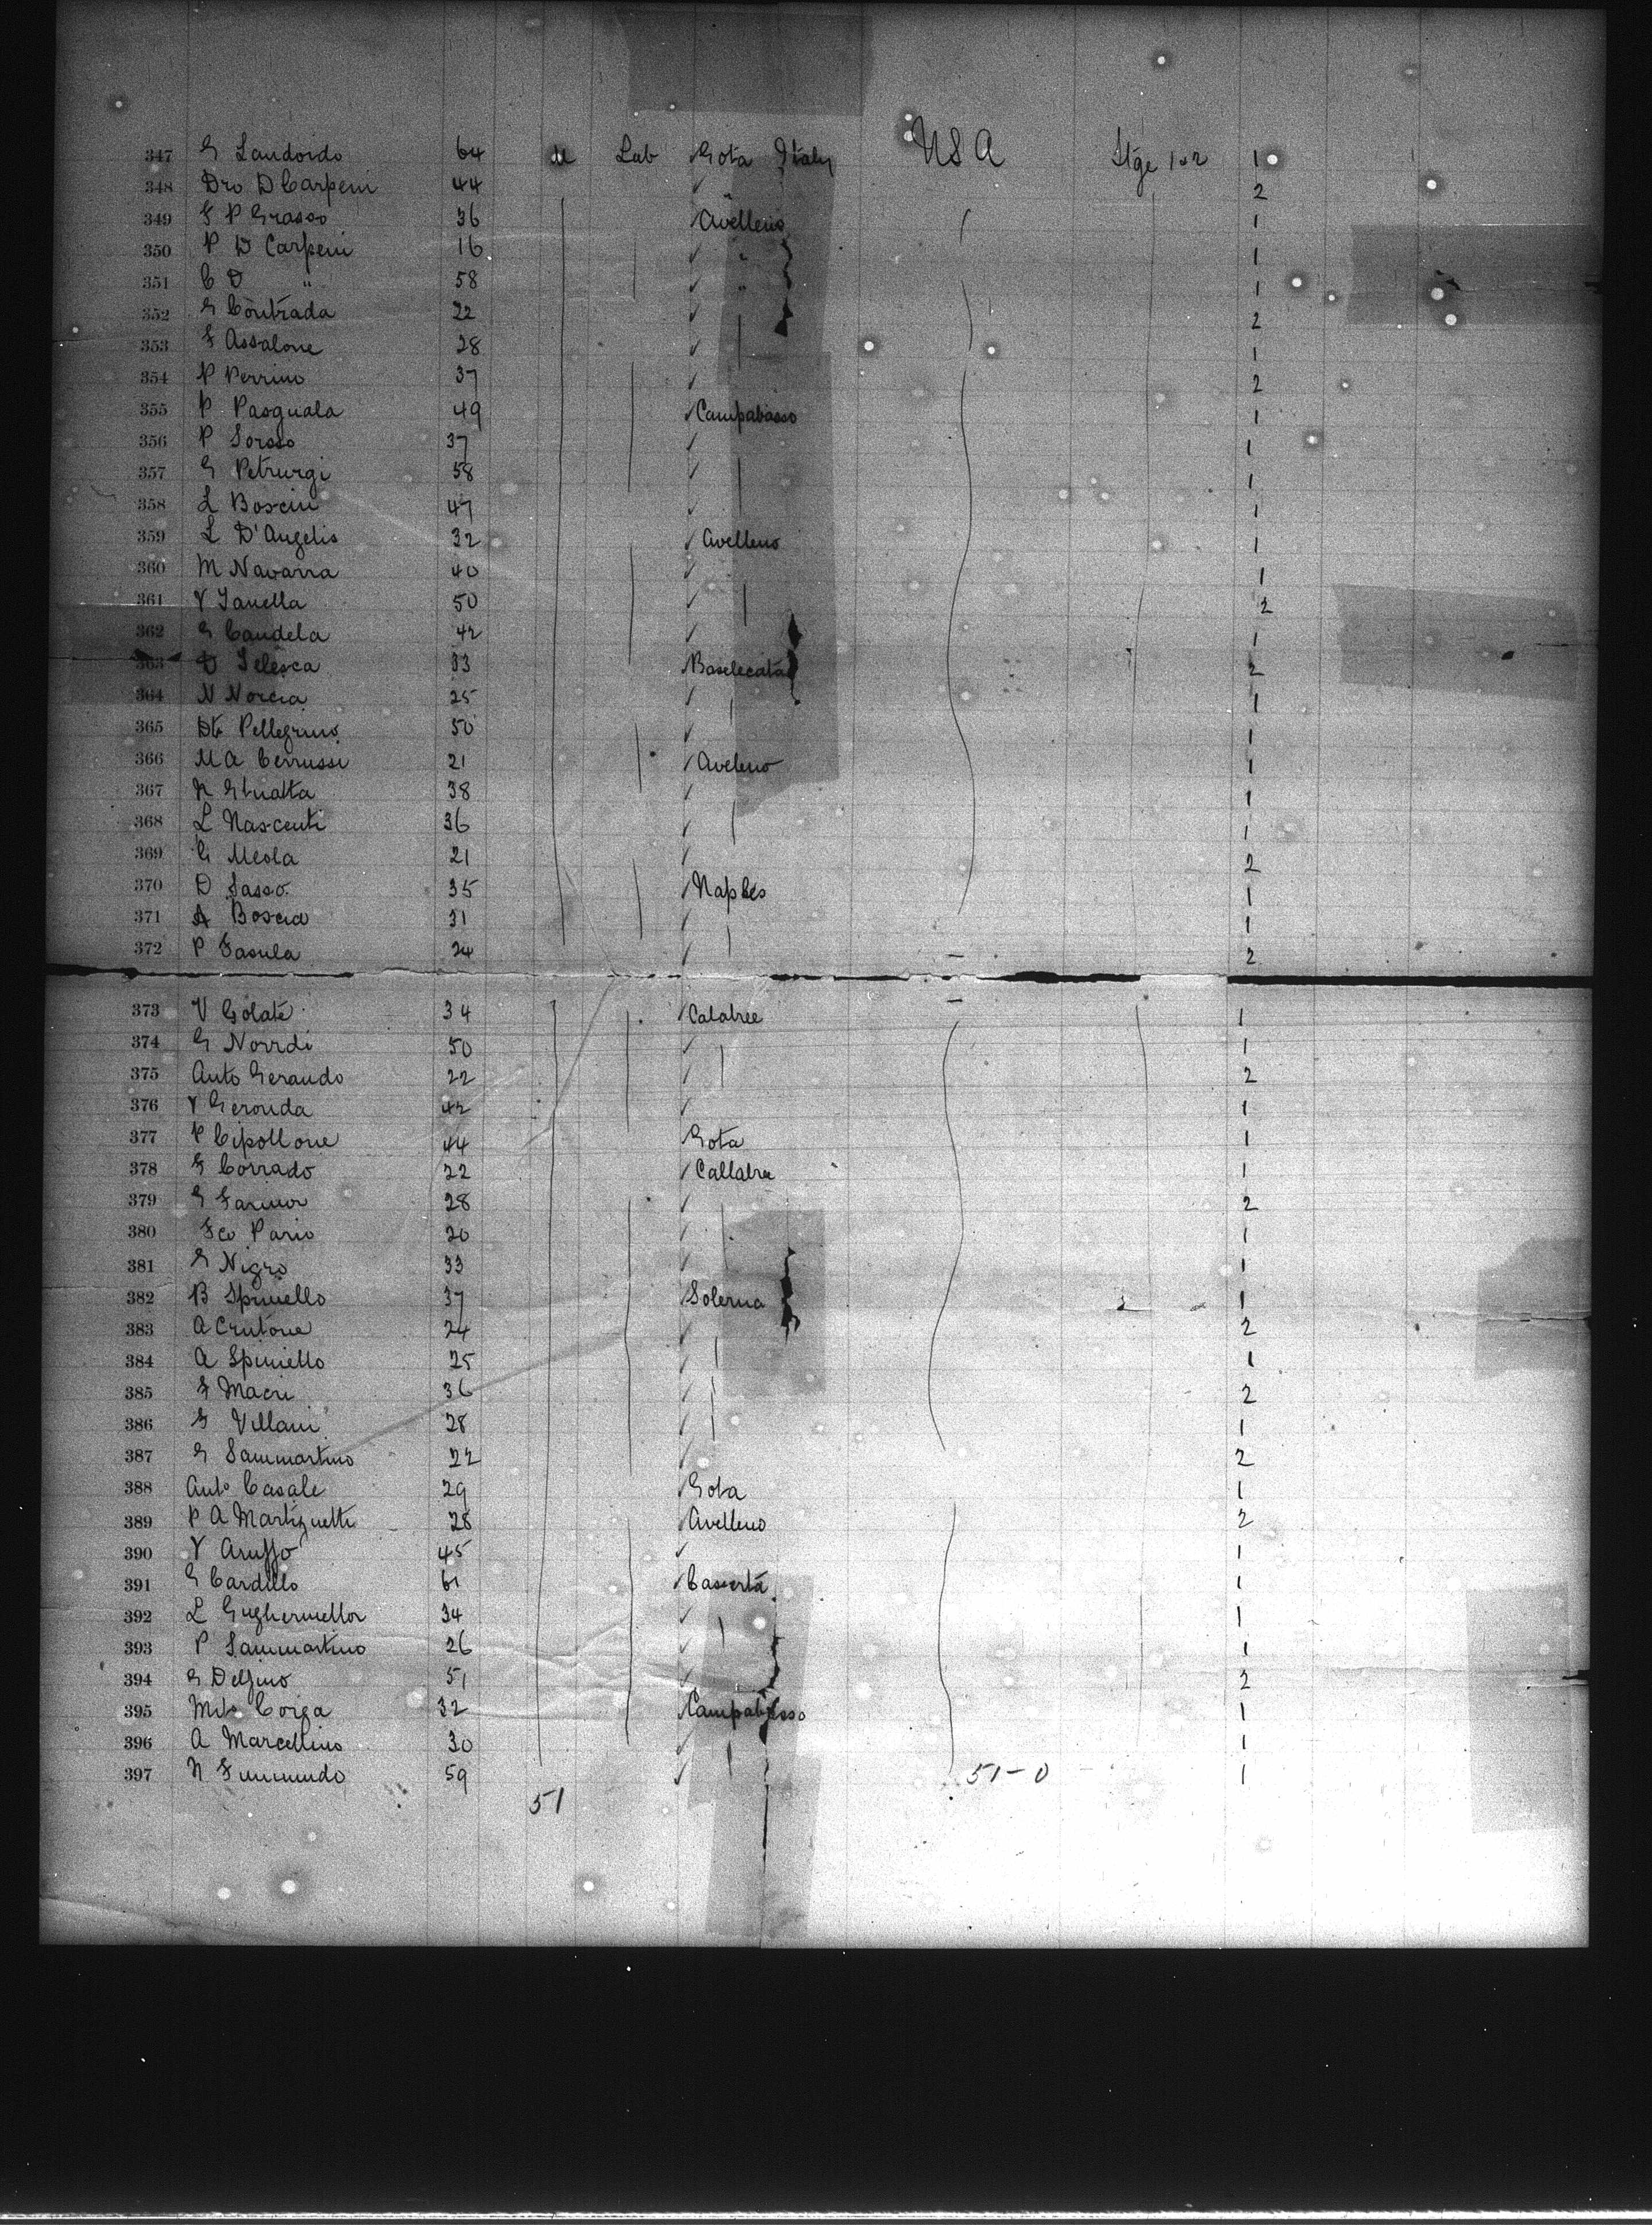 347 G Landordo 64 M Lab Gota Italy USA Stge 1 or 2 1
348 Dro D Carpeni 44 ✓ " 2
349 G P Grasso 36 Avelleno 1
350 P D Carpeni 16 ✓ " 1
351 C D " 58 ✓ " 1
352 G Contrada 22 ✓ 2
353 F Assalone 28 ✓ 1
354 P Perrino 37 ✓ 2
355 P Pasquala 49 ✓ Campabasso 1
356 P Sorsso 37 ✓ 1
357 G Petrurgi 58 ✓ 1
358 L Boscin 47 ✓ 1
359 L D'Angelis 32 ✓ Avelleno 1
360 M Navarra 40 ✓ 1
361 V Ianella 50 ✓ 2
362 G Candela 42 ✓ 1
363 Telesca 33 Baselecata 2
364 N Norcia 25 ✓ 1
365 Pellegrino 50 ✓ 1
366 M A Cerrussi 21 ✓ Aveleno 1
367 38 ✓ 1
368 L Nascenti 36 ✓ 1
369 G Meola 21 ✓ 2
370 D Sasso 35 ✓ Naples 1
371 A Boscia 31 ✓ 1
372 P Fasula 24 ✓ 2
373 V Golate 34 ✓ Calabree 1
374 G Norrdi 50 ✓ 1
375 Anto Gerando 22 ✓ 2
376 V Geronda 42 ✓ 1
377 P Cipollone 44 Gota 1
378 G Corrado 22 ✓ Callabra 1
379 G 28 ✓ 2
380 Fco Pario 20 ✓ 1
381 G Nigro 33 ✓ 1
382 B Spiniello 37 Solerna 1
383 A Crutone 24 ✓ 2
384 A Spiniello 25 ✓ 1
385 F Macri 36 ✓ 2
386 G Villani 28 ✓ 1
387 G Sammartino 22 ✓ 2
388 Anto Casale 29 Gota 1
389 P A Martignetti 28 ✓ Avelleno 2
390 V Aruffo 45 ✓ 1
391 G Cardillo 61 ✓ Caserta 1
392 L 34 ✓ 1
393 P Sammartino 26 ✓ 1
394 G Delfino 51 ✓ 2
395 Corga 32 Campabasso 1
396 A Marcellino 30 ✓ 1
397 N 59 ✓ 51-0 1
51